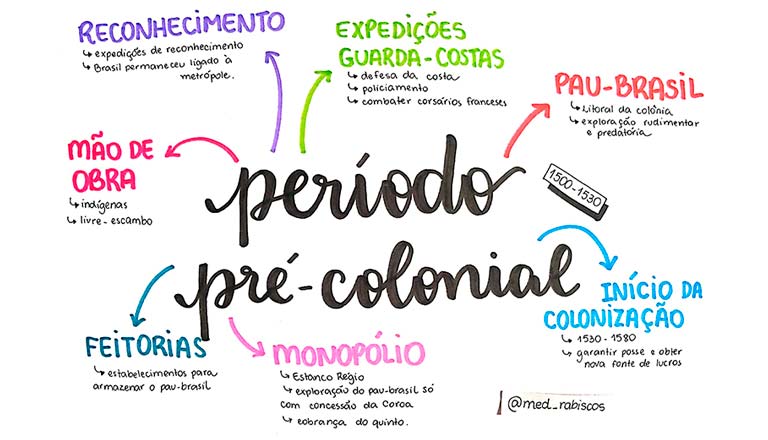 RECONHECIMENTO
↳ expedições de reconhecimento
↳ Brasil permaneceu ligado à
metrópole.
EXPEDIÇÕES
GUARDA-COSTAS
↳ defesa da costa
↳ policiamento
↳ combater corsários franceses
PAU-BRASIL
↳ Litoral da colônia
↳ exploração rudimentar
e predatória
MÃO DE
OBRA
↳ indígenas
↳ livre-escambo
período
pré-colonial
1500-1530
INÍCIO DA
COLONIZAÇÃO
↳ 1530-1580
↳ garantir posse e obter
nova fonte de lucros
FEITORIAS
↳ estabelecimentos para
armazenar o pau-brasil
MONOPÓLIO
↳ Estanco Régio
↳ exploração do pau-brasil só
com concessão da Coroa
↳ cobrança do quinto.
@med_rabiscos